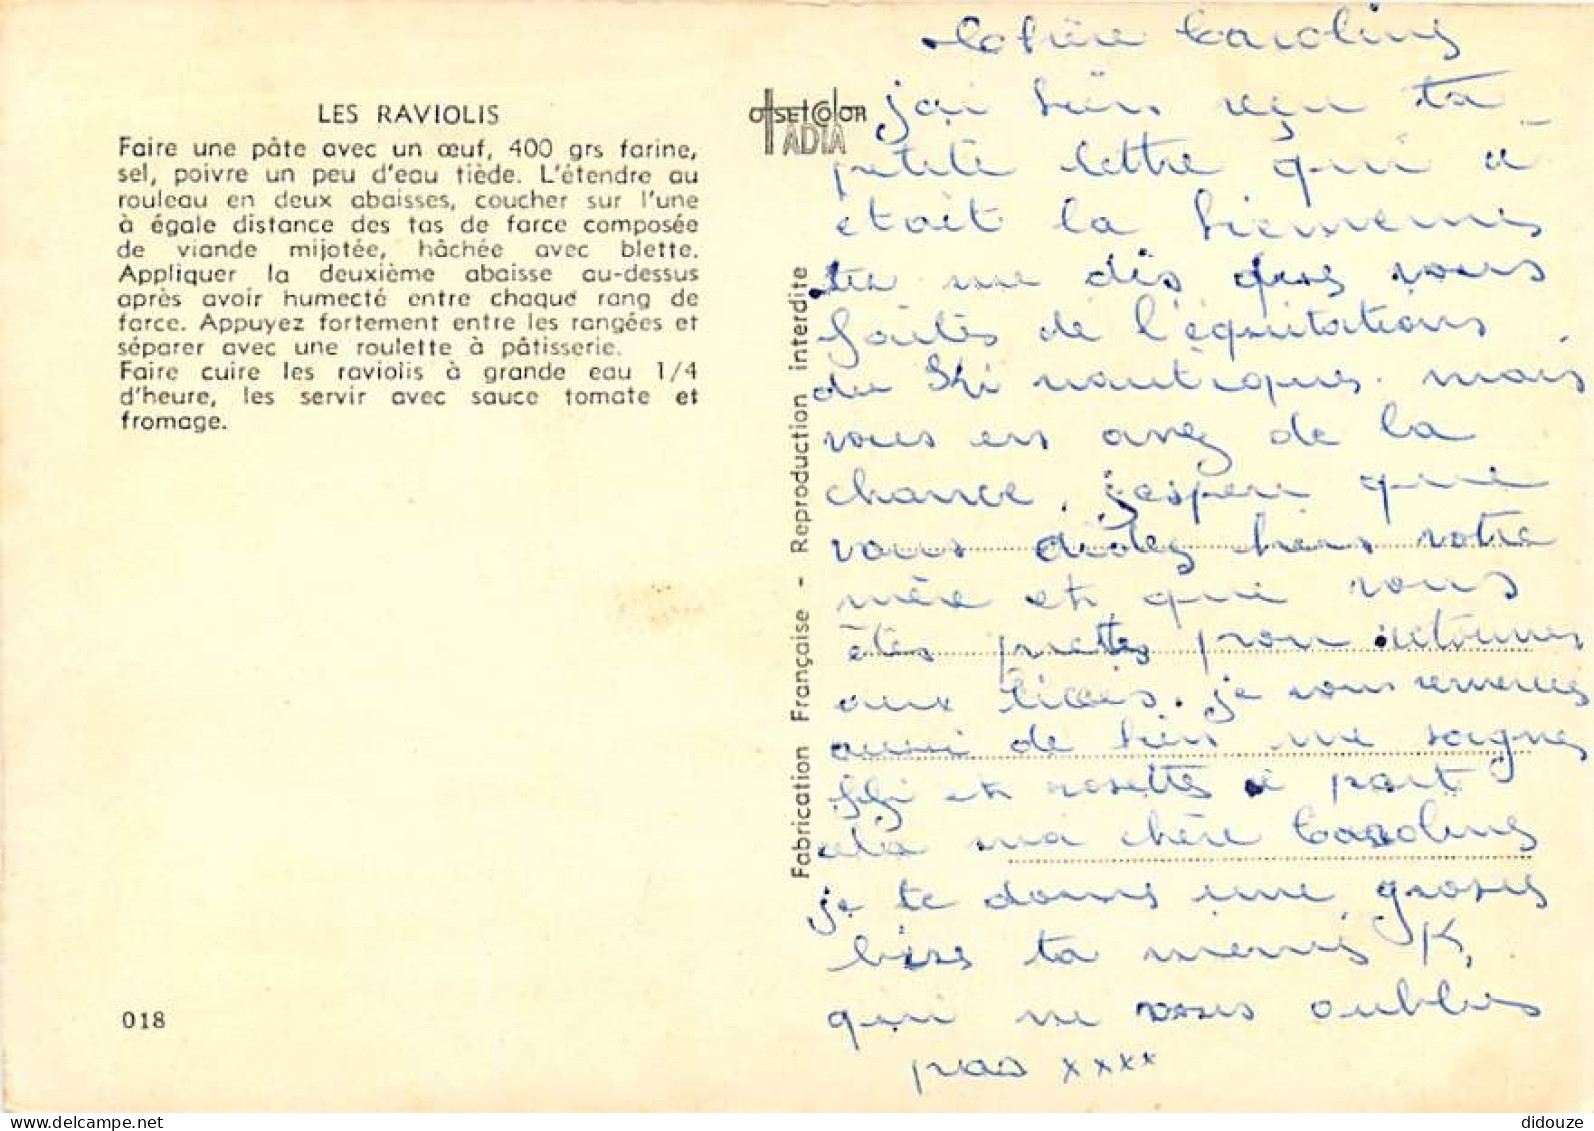 LES RAVIOLIS
Faire une pâte avec un œuf, 400 grs farine,
sel, poivre un peu d'eau tiède. L'étendre au
rouleau en deux abaisses, coucher sur l'une
à égale distance des tas de farce composée
de viande mijotée, hâchée avec blette.
Appliquer la deuxième abaisse au-dessus
après avoir humecté entre chaque rang de
farce. Appuyez fortement entre les rangées et
séparer avec une roulette à pâtisserie.
Faire cuire les raviolis à grande eau 1/4
d'heure, les servir avec sauce tomate et
fromage.
018
OffSETCOlOR
ADIA
Fabrication Française - Reproduction interdite
Caroling
j'ai bien reçu ta
petite lettre qui a
était la
tu me dis que vous
faites de l'équitations
du Ski nautique. mais
vous en avez de la
chance, j'espere que
vous aidez biens votre
mère et que vous
êtes prettes pour retournes
aux . je vous remercies
aussi de bien me soignes
fifi et a part
cela ma chère Caroling
je te donne une groses
bises ta memé K,
qui ne vous oublies
pas xxxx
didouze
delcampe.net